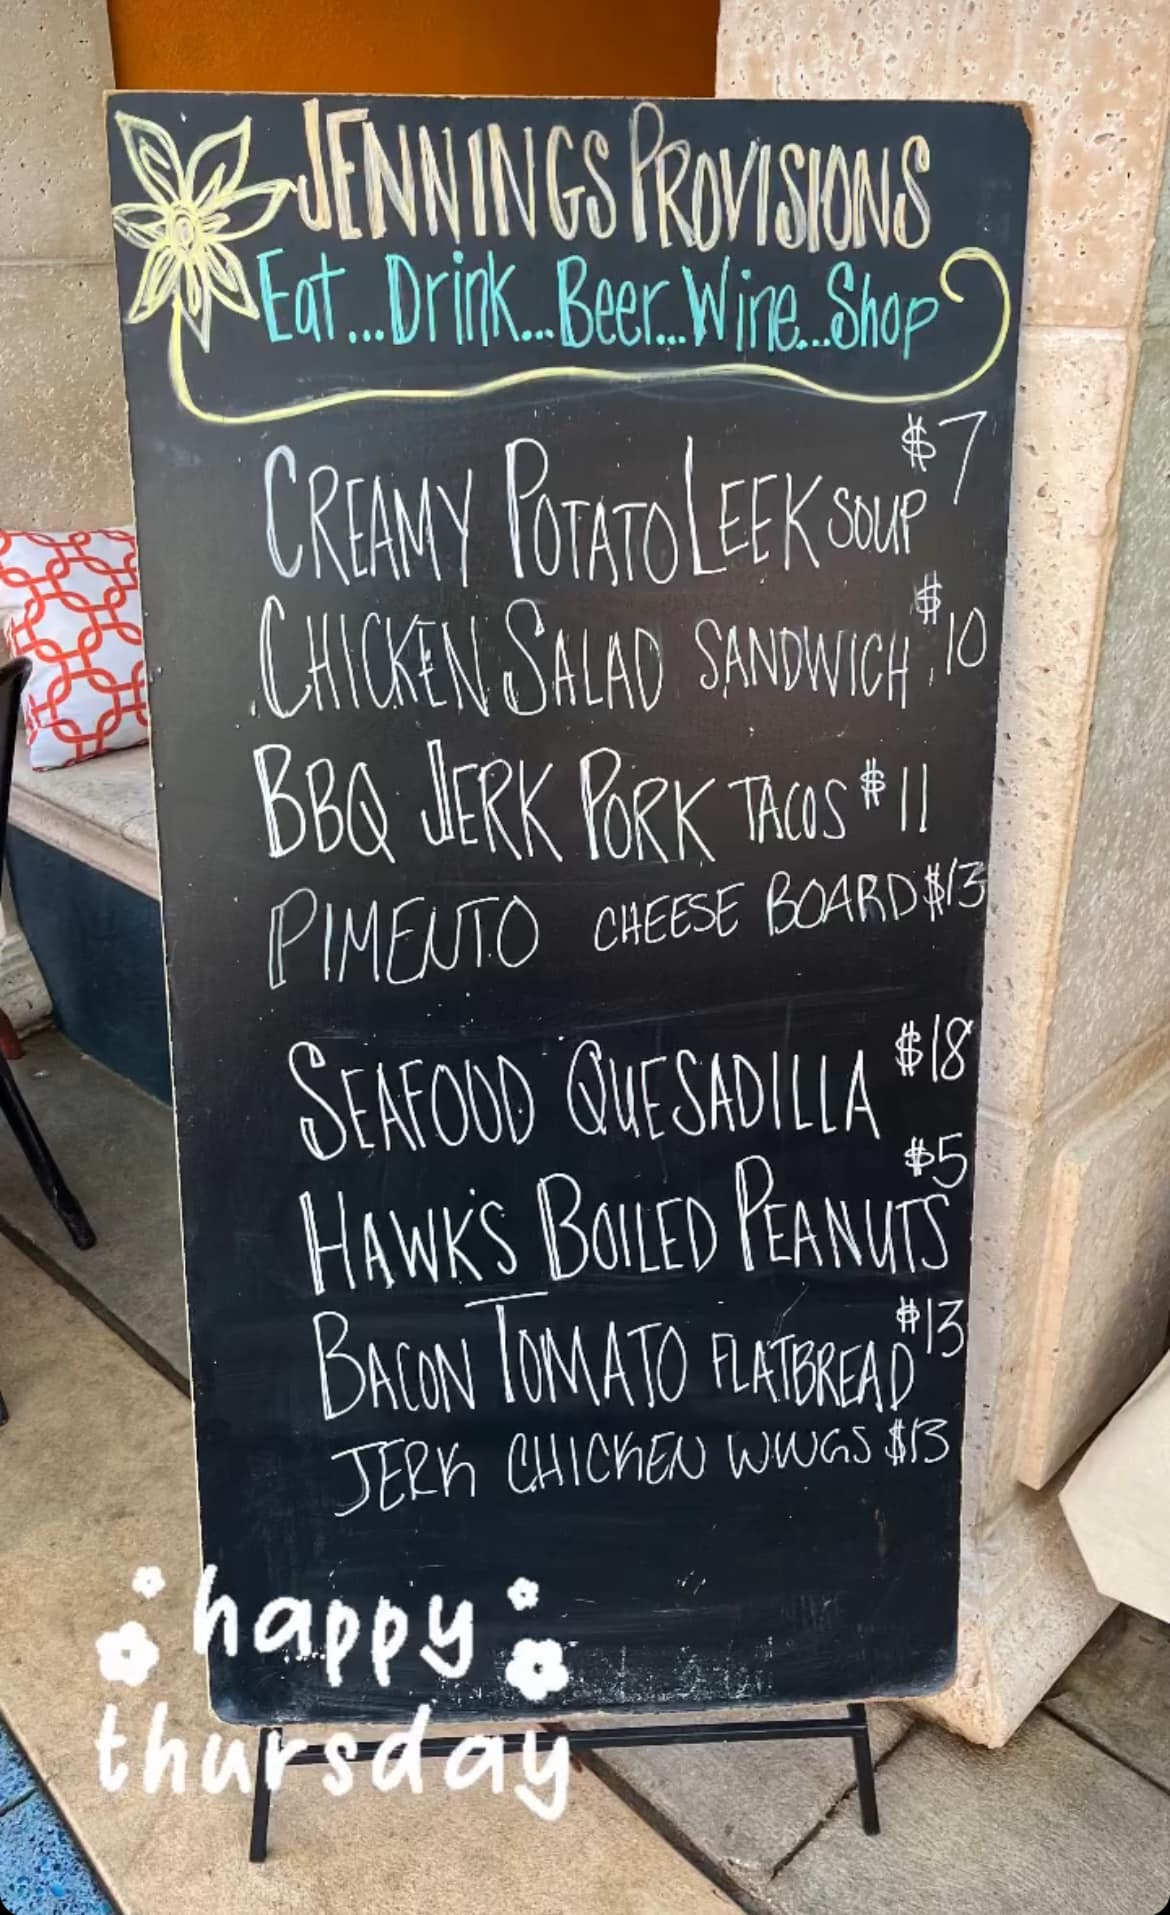 JENNINGS PROVISIONS
Eat...Drink...Beer...Wine...Shop
CREAMY POTATO LEEK SOUP $7
CHICKEN SALAD SANDWICH $10
BBQ JERK PORK TACOS $11
PIMENTO CHEESE BOARD $13
SEAFOOD QUESADILLA $18
HAWK'S BOILED PEANUTS $5
BACON TOMATO FLATBREAD $13
JERK CHICKEN WINGS $13
happy
thursday